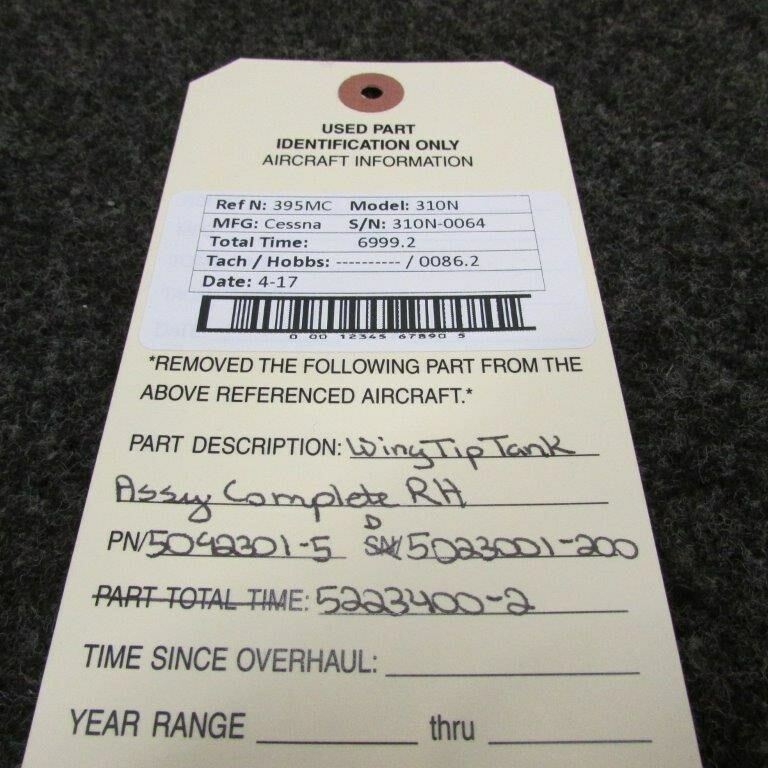 USED PART
IDENTIFICATION ONLY
AIRCRAFT INFORMATION
Ref N: 395MC Model: 310N
MFG: Cessna S/N: 310N-0064
Total Time: 6999.2
Tach / Hobbs: ---------- / 0086.2
Date: 4-17
0 00 12345 67890 5
*REMOVED THE FOLLOWING PART FROM THE
ABOVE REFERENCED AIRCRAFT.*
PART DESCRIPTION: Wing Tip Tank
Assy Complete RH
PN/5042301-5 D SN/5023001-200
PART TOTAL TIME: 5223400-2
TIME SINCE OVERHAUL:
YEAR RANGE thru